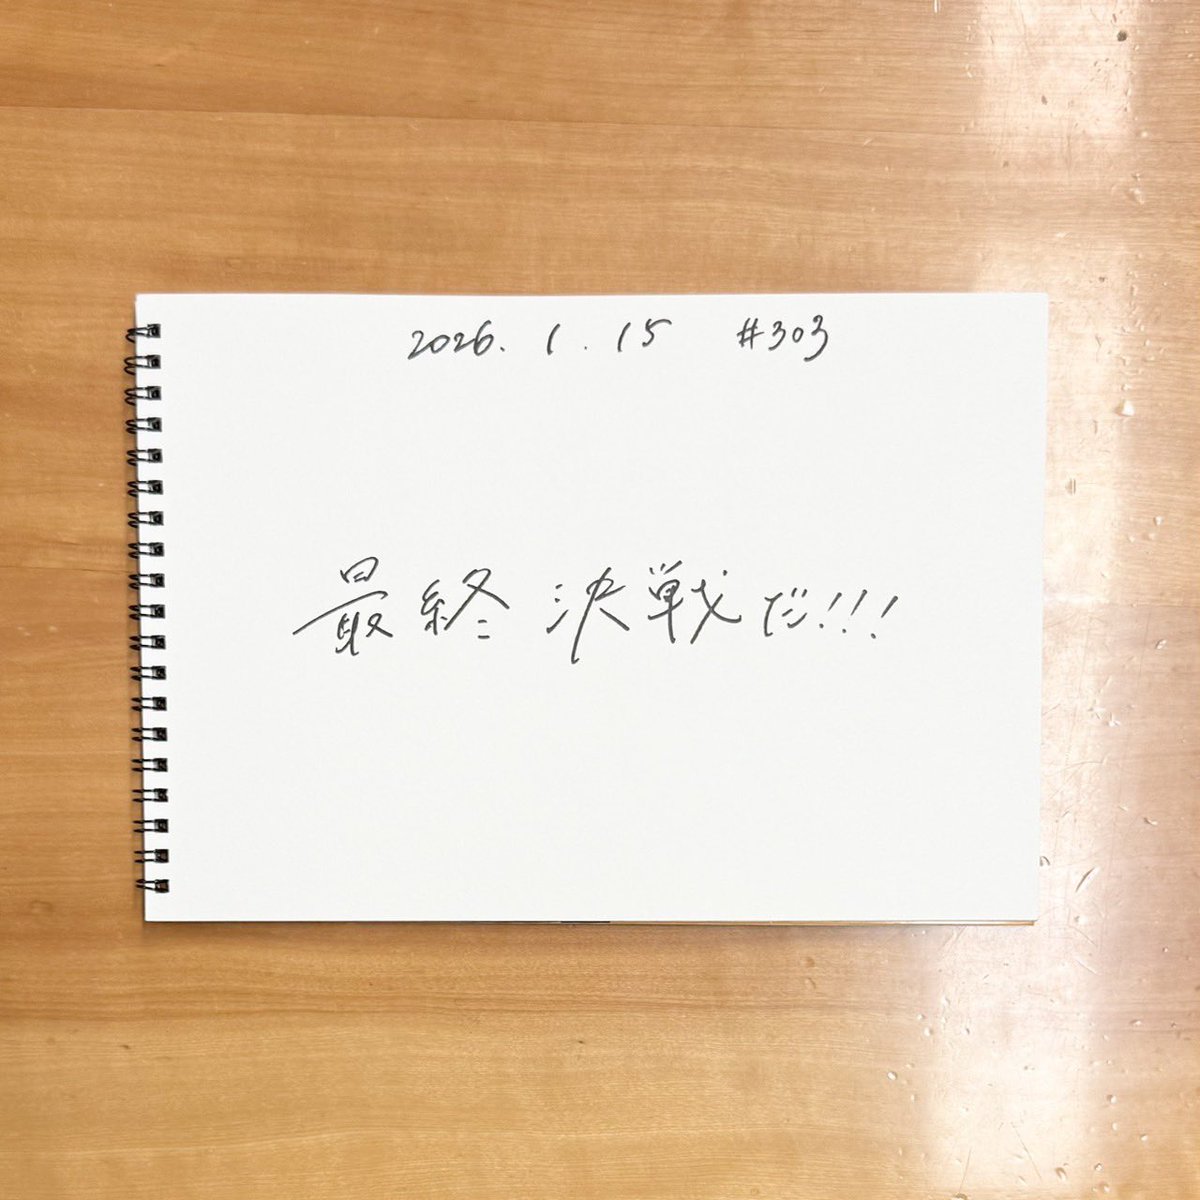 2026. 1. 15 #303
最終決戦だ!!!